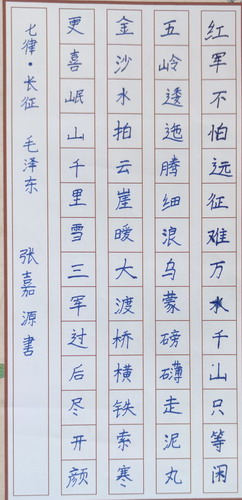 红军不怕远征难万水千山只等闲
五岭逶迤腾细浪乌蒙磅礴走泥丸
金沙水拍云崖暖大渡桥横铁索寒
更喜岷山千里雪三军过后尽开颜
七律·长征 毛泽东 张嘉源书